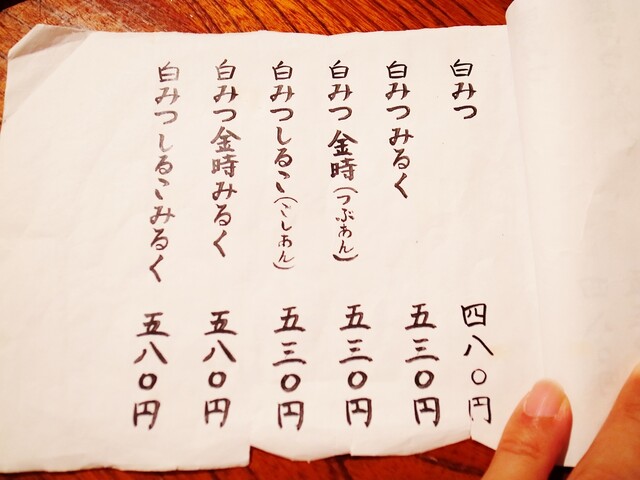 白みつ 四八〇円
白みつみるく 五三〇円
白みつ金時(つぶあん) 五三〇円
白みつしるこ(こしあん) 五三〇円
白みつ金時みるく 五八〇円
白みつしるこみるく 五八〇円